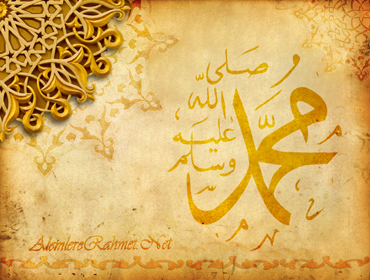 محمد
صلى
الله
عليه
وسلم
AlemlereRahmet.Net